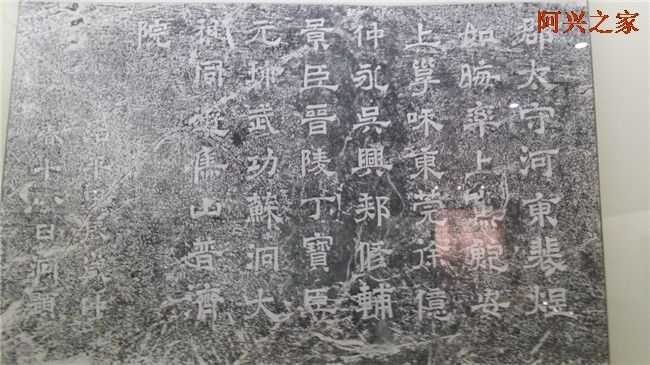 阿兴之家
郡太守河東裴煜
如晦率上鮑安
上味東莞徐億
仲永吳興郟脩輔
景臣晉陵丁寶臣
元珍武功蘇洞大
同遊焦山普濟
院
平
十八日洞題